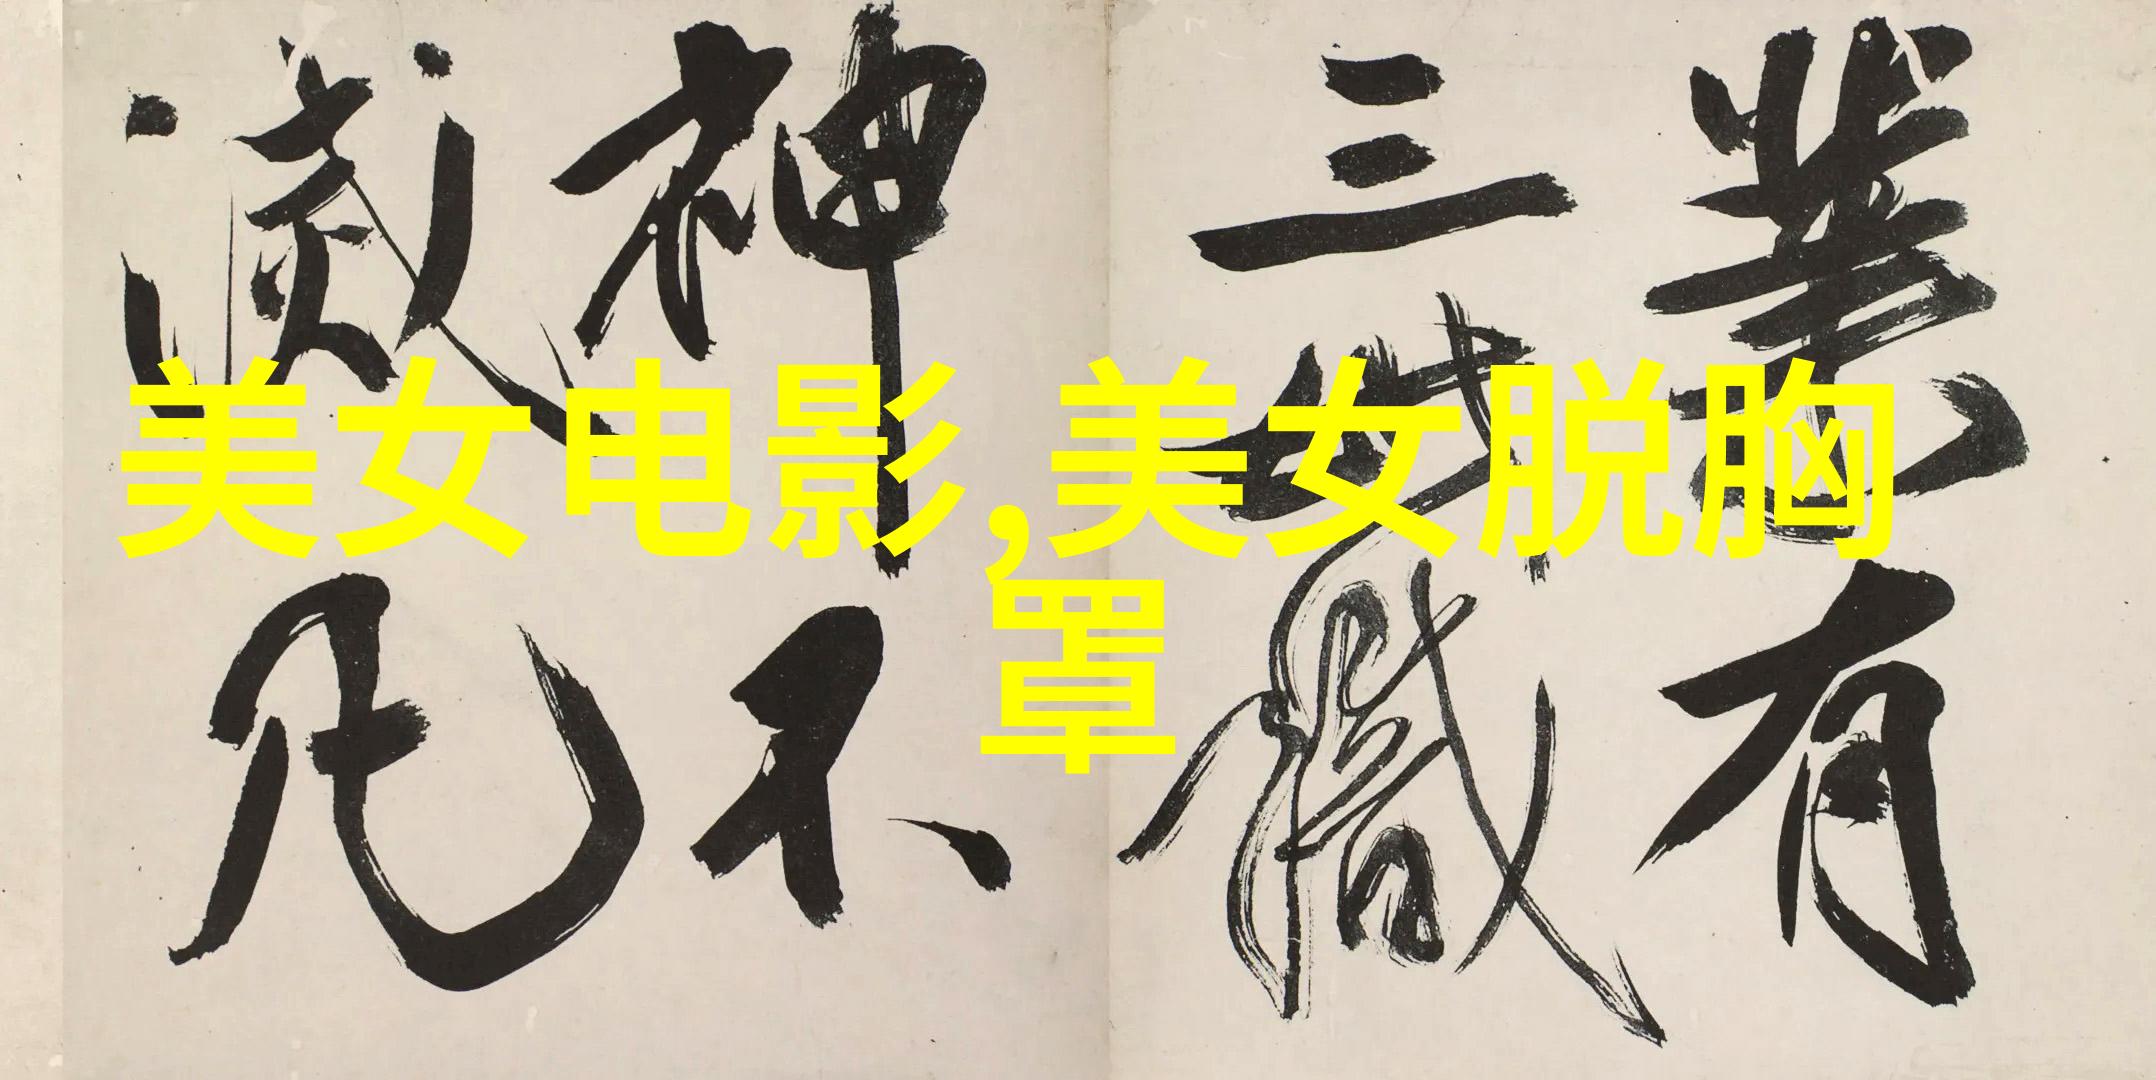 美女电影,美女脱胸
罩
業有
三
神不
滅凡